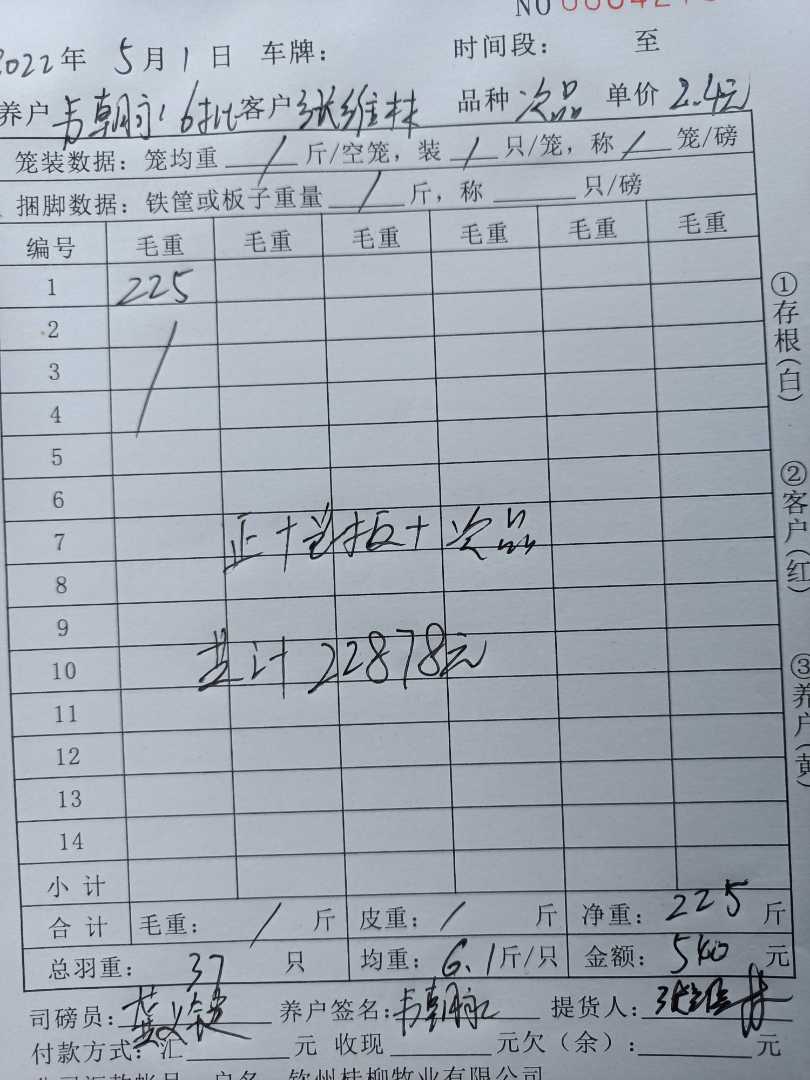 NO
2022年 5月 1日 车牌： 时间段： 至
养户 韦朝永 16批 客户 张维林 品种 次品 单价 2.4元
笼装数据：笼均重 / 斤/空笼，装 / 只/笼，称 / 笼/磅
捆脚数据：铁筐或板子重量 / 斤，称 只/磅
编号 毛重 毛重 毛重 毛重 毛重 毛重
1 225
2
3
4
5
6
7 正+岩板+次品
8
9
10 共计22878元
11
12
13
14
小计
合计 毛重： / 斤 皮重： / 斤 净重： 225 斤
总羽重： 37 只 均重： 6.1 斤/只 金额： 540 元
司磅员： 养户签名： 韦朝永 提货人： 张维林
付款方式：汇 元 收现 元欠（余）： 元
户名 钦州桂柳牧业有限公司
①存根（白）
②客户（红）
③养户（黄）